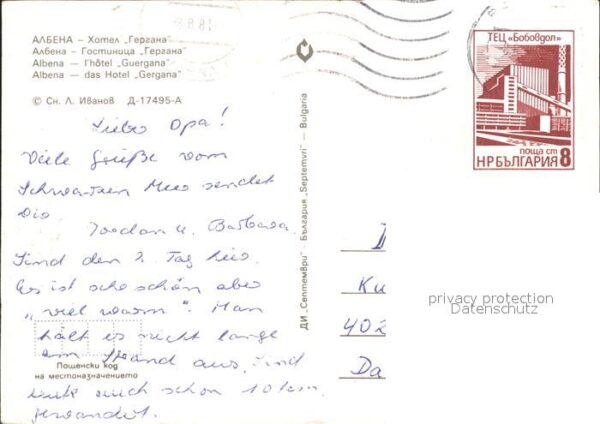 8.8.81
АЛБЕНА – Хотел „Гергана"
Албена – Гостиница „Гергана"
Albena – l'hôtel „Guergana"
Albena – das Hotel „Gergana"
© Сн. Л. Иванов Д-17495-А
Lieber Opa!
Viele Grüße vom
Schwarzen Meer sendet
Dir
u. Barbara.
Sind den 2. Tag hier.
Es ist sehr schön aber
„viel warm". Man
hält es nicht lange
am Strand aus. Sind
auch schon 10 km
gewandert.
Пощенски код
на местоназначението
ДИ „Септември" – България „Septemvri" – Bulgaria
ТЕЦ „Бобовдол"
поща ст
НР БЪЛГАРИЯ 8
Ku
402
Da
privacy protection
Datenschutz